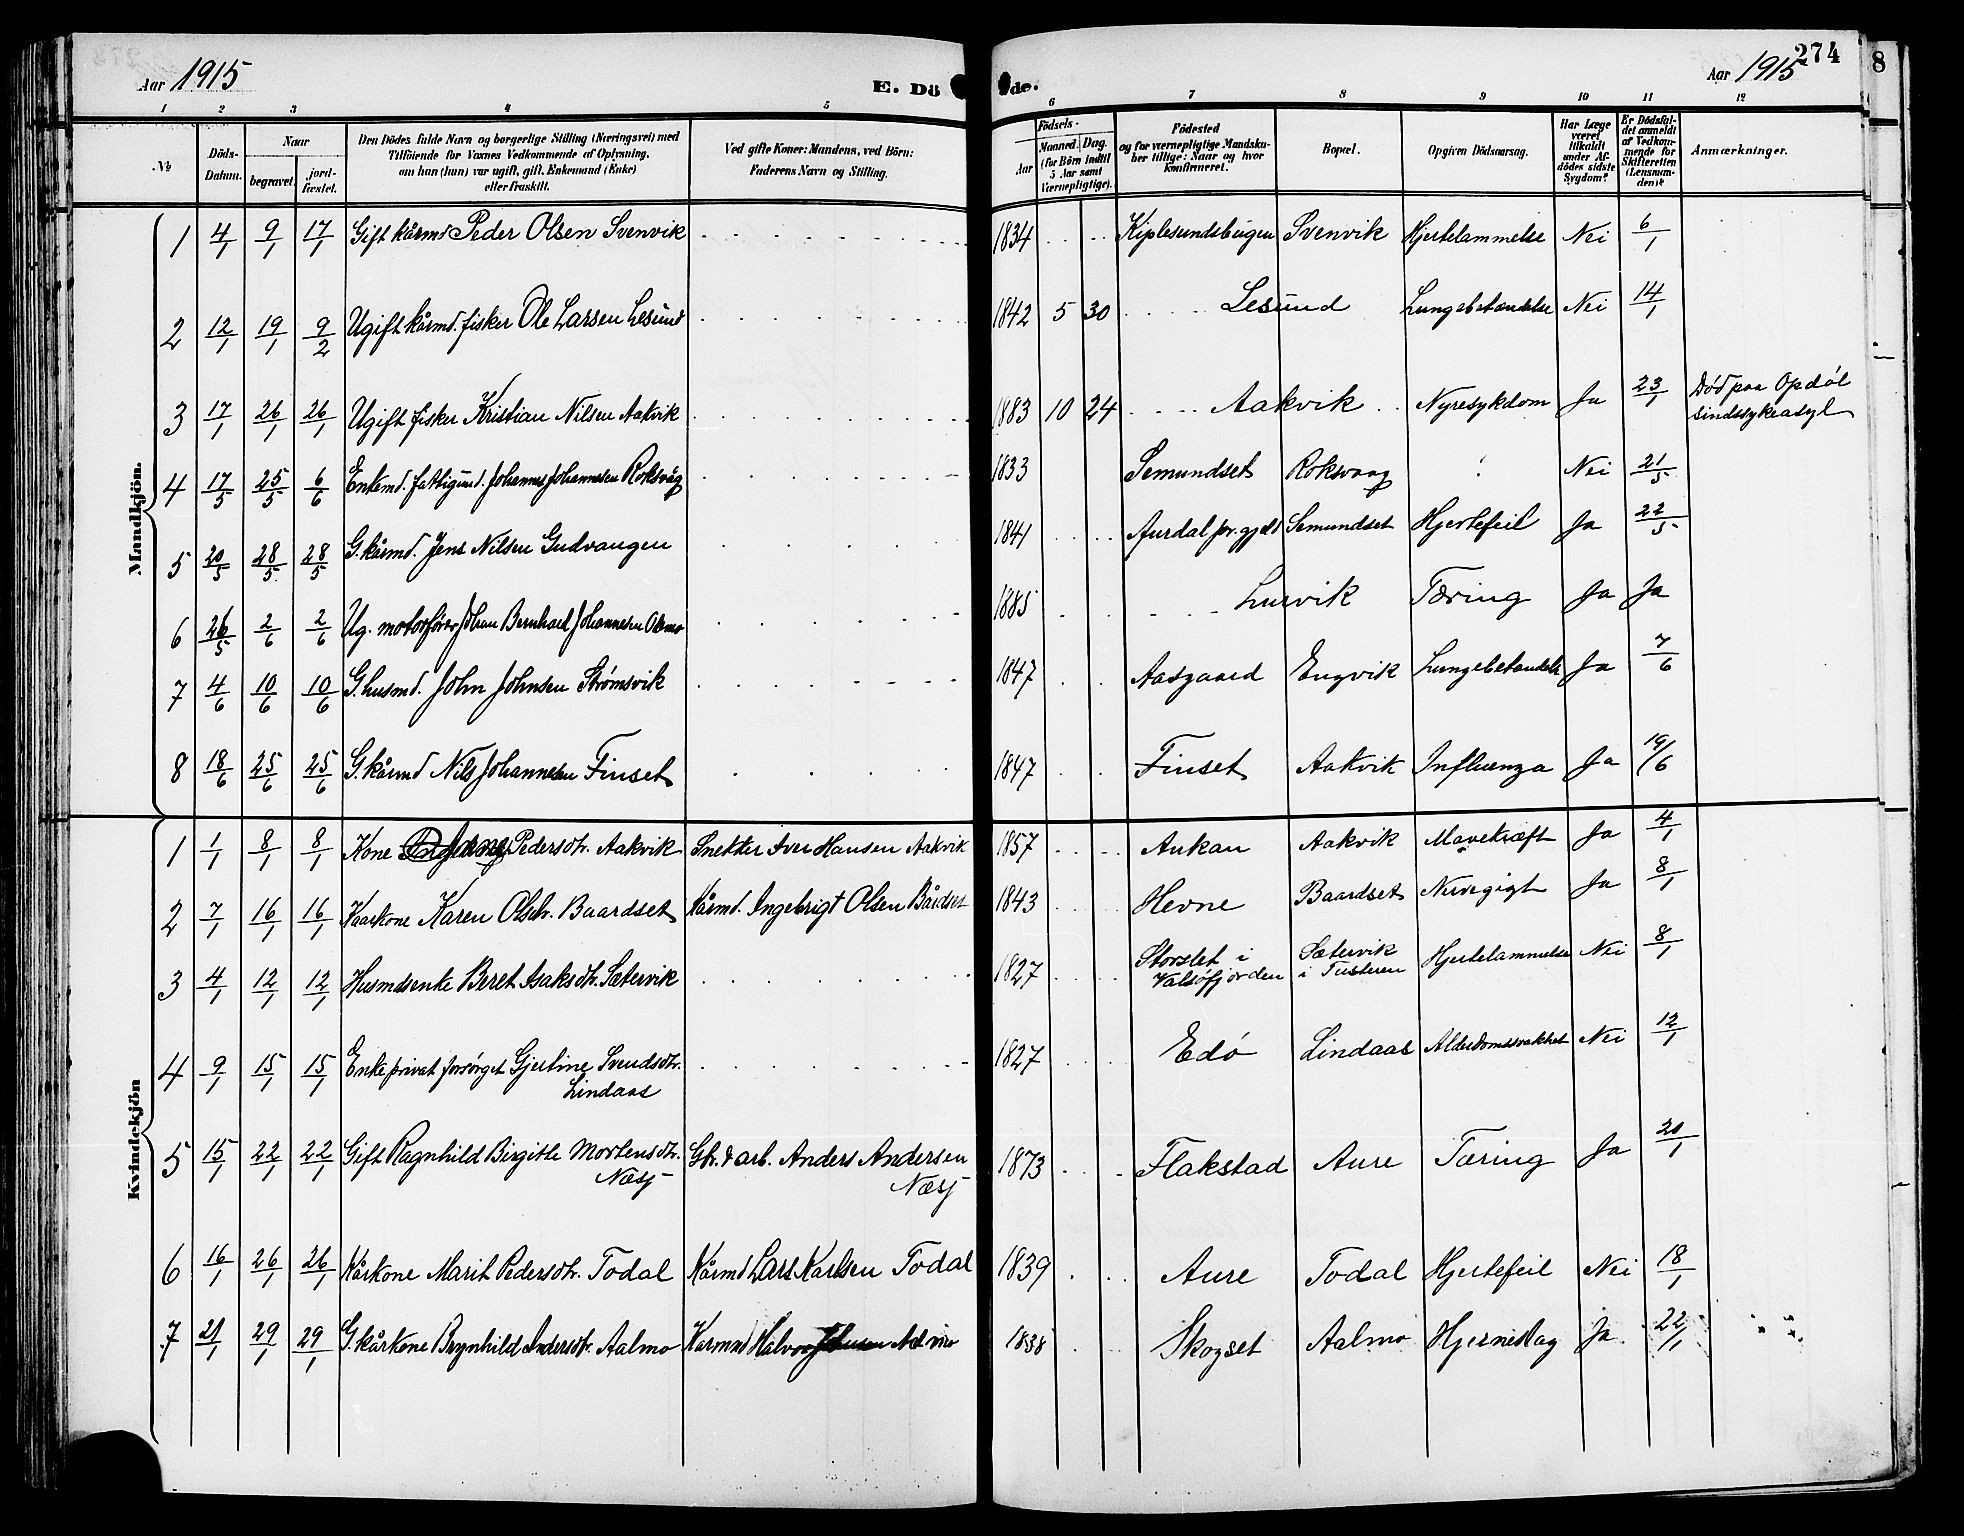 Aar 1915
E. Döde.
Aar 1915
274
8
1 2 3 4 5 6 7 8 9 10 11 12
№
Döds-Datum.
Naar
begravet.
jord-fæstet.
Den Dödes fulde Navn og borgerlige Stilling (Næringsvei) med
Tilföiende for Voxnes Vedkommende af Oplysning,
om han (hun) var ugift, gift, Enkemand (Enke)
eller fraskilt.
Ved gifte Koner: Mandens, ved Börn:
Faderens Navn og Stilling.
Födsels-
Aar
Maaned. Dag.
(for Börn indtil
5 Aar samt
Værnepligtige).
Födested
og for værnepligtige Mandsku-
ber tillige: Naar og hvor
Konfirmeret.
Bopæl.
Opgiven Dödsaarsag.
Har Læge
været
tilkaldt
under Af-
dödes sidste
Sygdom?
Er Dödsfal-
det anmeldt
af Vedkom-
mende for
Skifteretten
(Lensman-
den)?
Anmærkninger.
Mandkjön.
1 4/1 9/1 17/1 Gift kårmd Peder Olsen Svenvik 1834 Kiplesundsbugen Svenvik Hjertelammelse Nei 6/1
2 12/1 19/1 9/2 Ugift kårmd. fisker Ole Larsen Lesund 1842 5 30 Lesund Lungebetændelse Nei 14/1
3 17/1 26/1 26/1 Ugift fisker Kristian Nilsen Aakvik 1883 10 24 Aakvik Nyresykdom Ja 23/1 Död paa Opdöl
sindssykeasyl
4 17/5 25/5 6/6 Enkemd. fattigund. Johannes Johannesen Roksvåg 1833 Semundset Roksvaag Nei 21/5
5 20/5 28/5 28/5 G. kårmd. Jens Nilsen Gudvangen 1841 Aurdal pr.gjeld Semundset Hjertefeil Ja 22/5
6 26/5 2/6 2/6 Ug. motorfører Johan Bernhard Johannesen 1885 Lurvik Tæring Ja Ja
7 4/6 10/6 10/6 G. husmd. John Johnsen Strømsvik 1847 Aasgaard Engvik Lungebetændelse Ja 7/6
8 18/6 25/6 25/6 G. kårmd Nils Johannesen Finset 1847 Finset Aakvik Influenza Ja 19/6
Kvindekjön
1 1/1 8/1 8/1 Kone Pedersdtr. Aakvik Snekker Iver Hansen Aakvik 1857 Aukan Aakvik Mavekræft Ja 4/1
2 7/1 16/1 16/1 Kaarkone Karen Olsdtr. Baardset Kårmd. Ingebrigt Olsen Bårdset 1843 Hevne Baardset Nervegigt Ja 8/1
3 4/1 12/1 12/1 Husmdsenke Beret Isaksdtr. Sætervik 1827 Storslet i
Valsøfjorden Sætervik
i Tusteren Hjertelammelse Nei 8/1
4 9/1 15/1 15/1 Enke privat forsørget Gjertine Svendsdtr.
Lindaas 1827 Edö Lindaas Alderdomssvakhet Nei 12/1
5 15/1 22/1 22/1 Gift Ragnhild Birgitte Mortensdtr.
Næsj Gbr. & arb. Anders Andersen
Næsj 1873 Flakstad Aure Tæring Ja 20/1
6 16/1 26/1 26/1 Kårkone Marit Pedersdtr. Todal Kårmd Lars Karlsen Todal 1839 Aure Todal Hjertefeil Nei 18/1
7 21/1 29/1 29/1 G. kårkone Brynhild Andersdtr. Aalmo Karmnd Halvor 1838 Skogset Aalmo Hjerneslag Ja 22/1